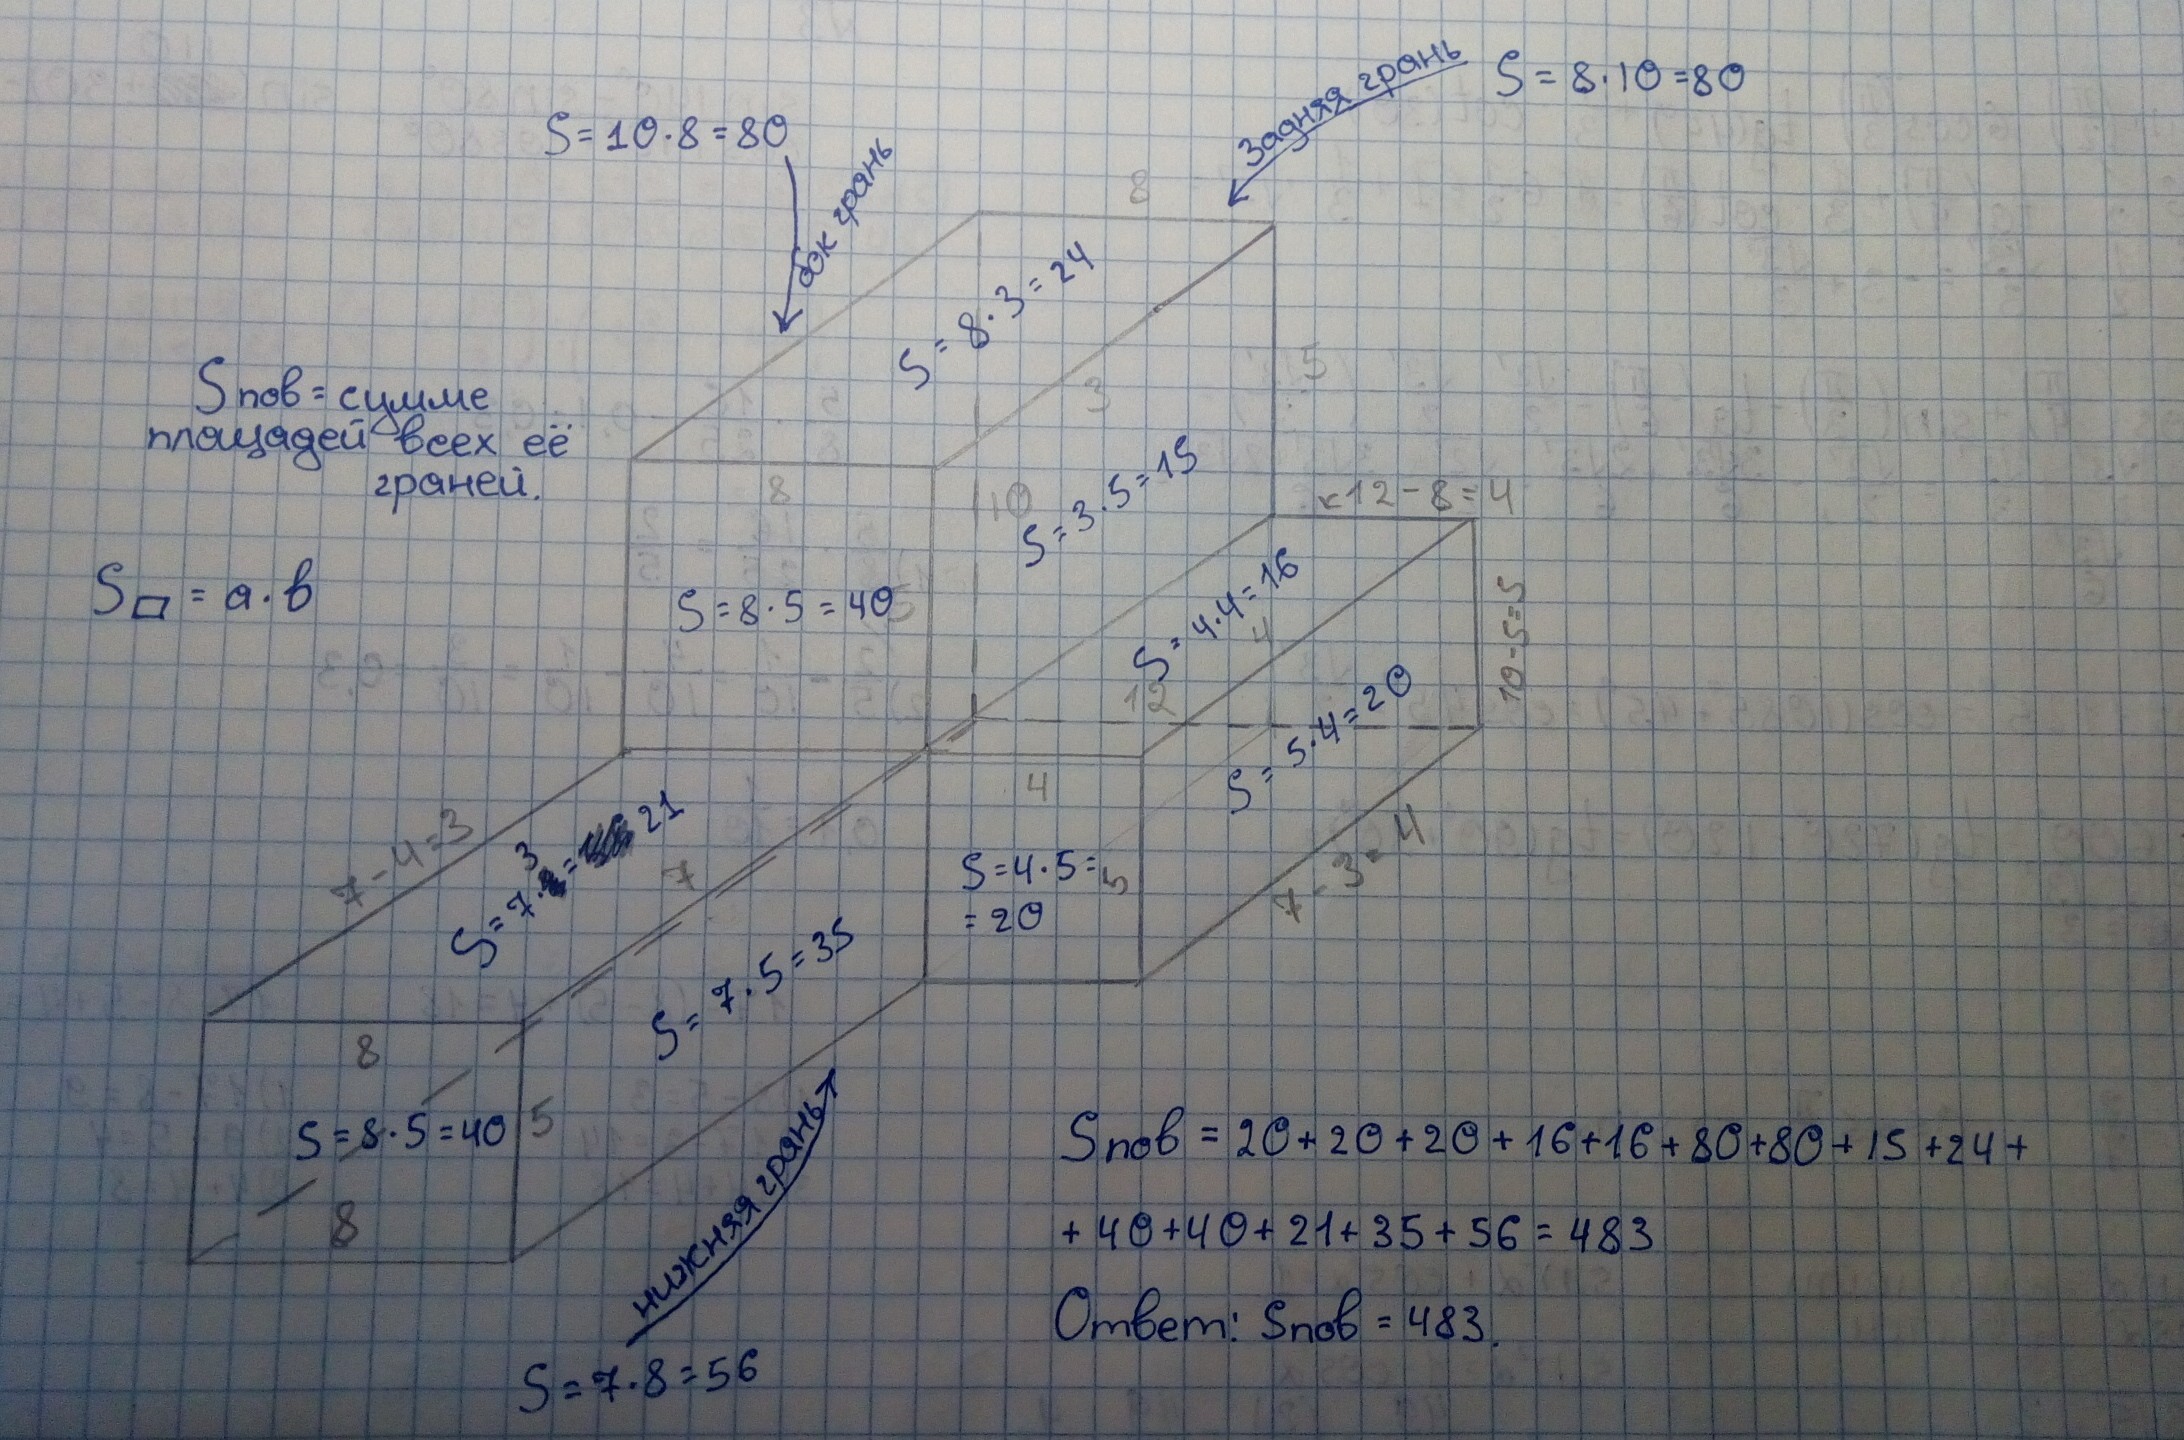 Задняя грань
S = 8·10 = 80
S = 10·8 = 80
бок грань
8
S = 8·3 = 24
3
5
Sпов = сумме
площадей всех её
граней.
8
10
S = 3·5 = 15
12-8=4
S▱ = a·b
S = 8·5 = 40
5
S = 4·4 = 16
4
10-5=5
12
S = 5·4 = 20
4
7-4=3
S = 7·3 = 21
7
S = 4·5 =
= 20
5
7-3=4
S = 7·5 = 35
8
S = 8·5 = 40
5
8
нижняя грань
S = 7·8 = 56
Sпов = 20+20+20+16+16+80+80+15+24+
+40+40+21+35+56 = 483
Ответ: Sпов = 483.